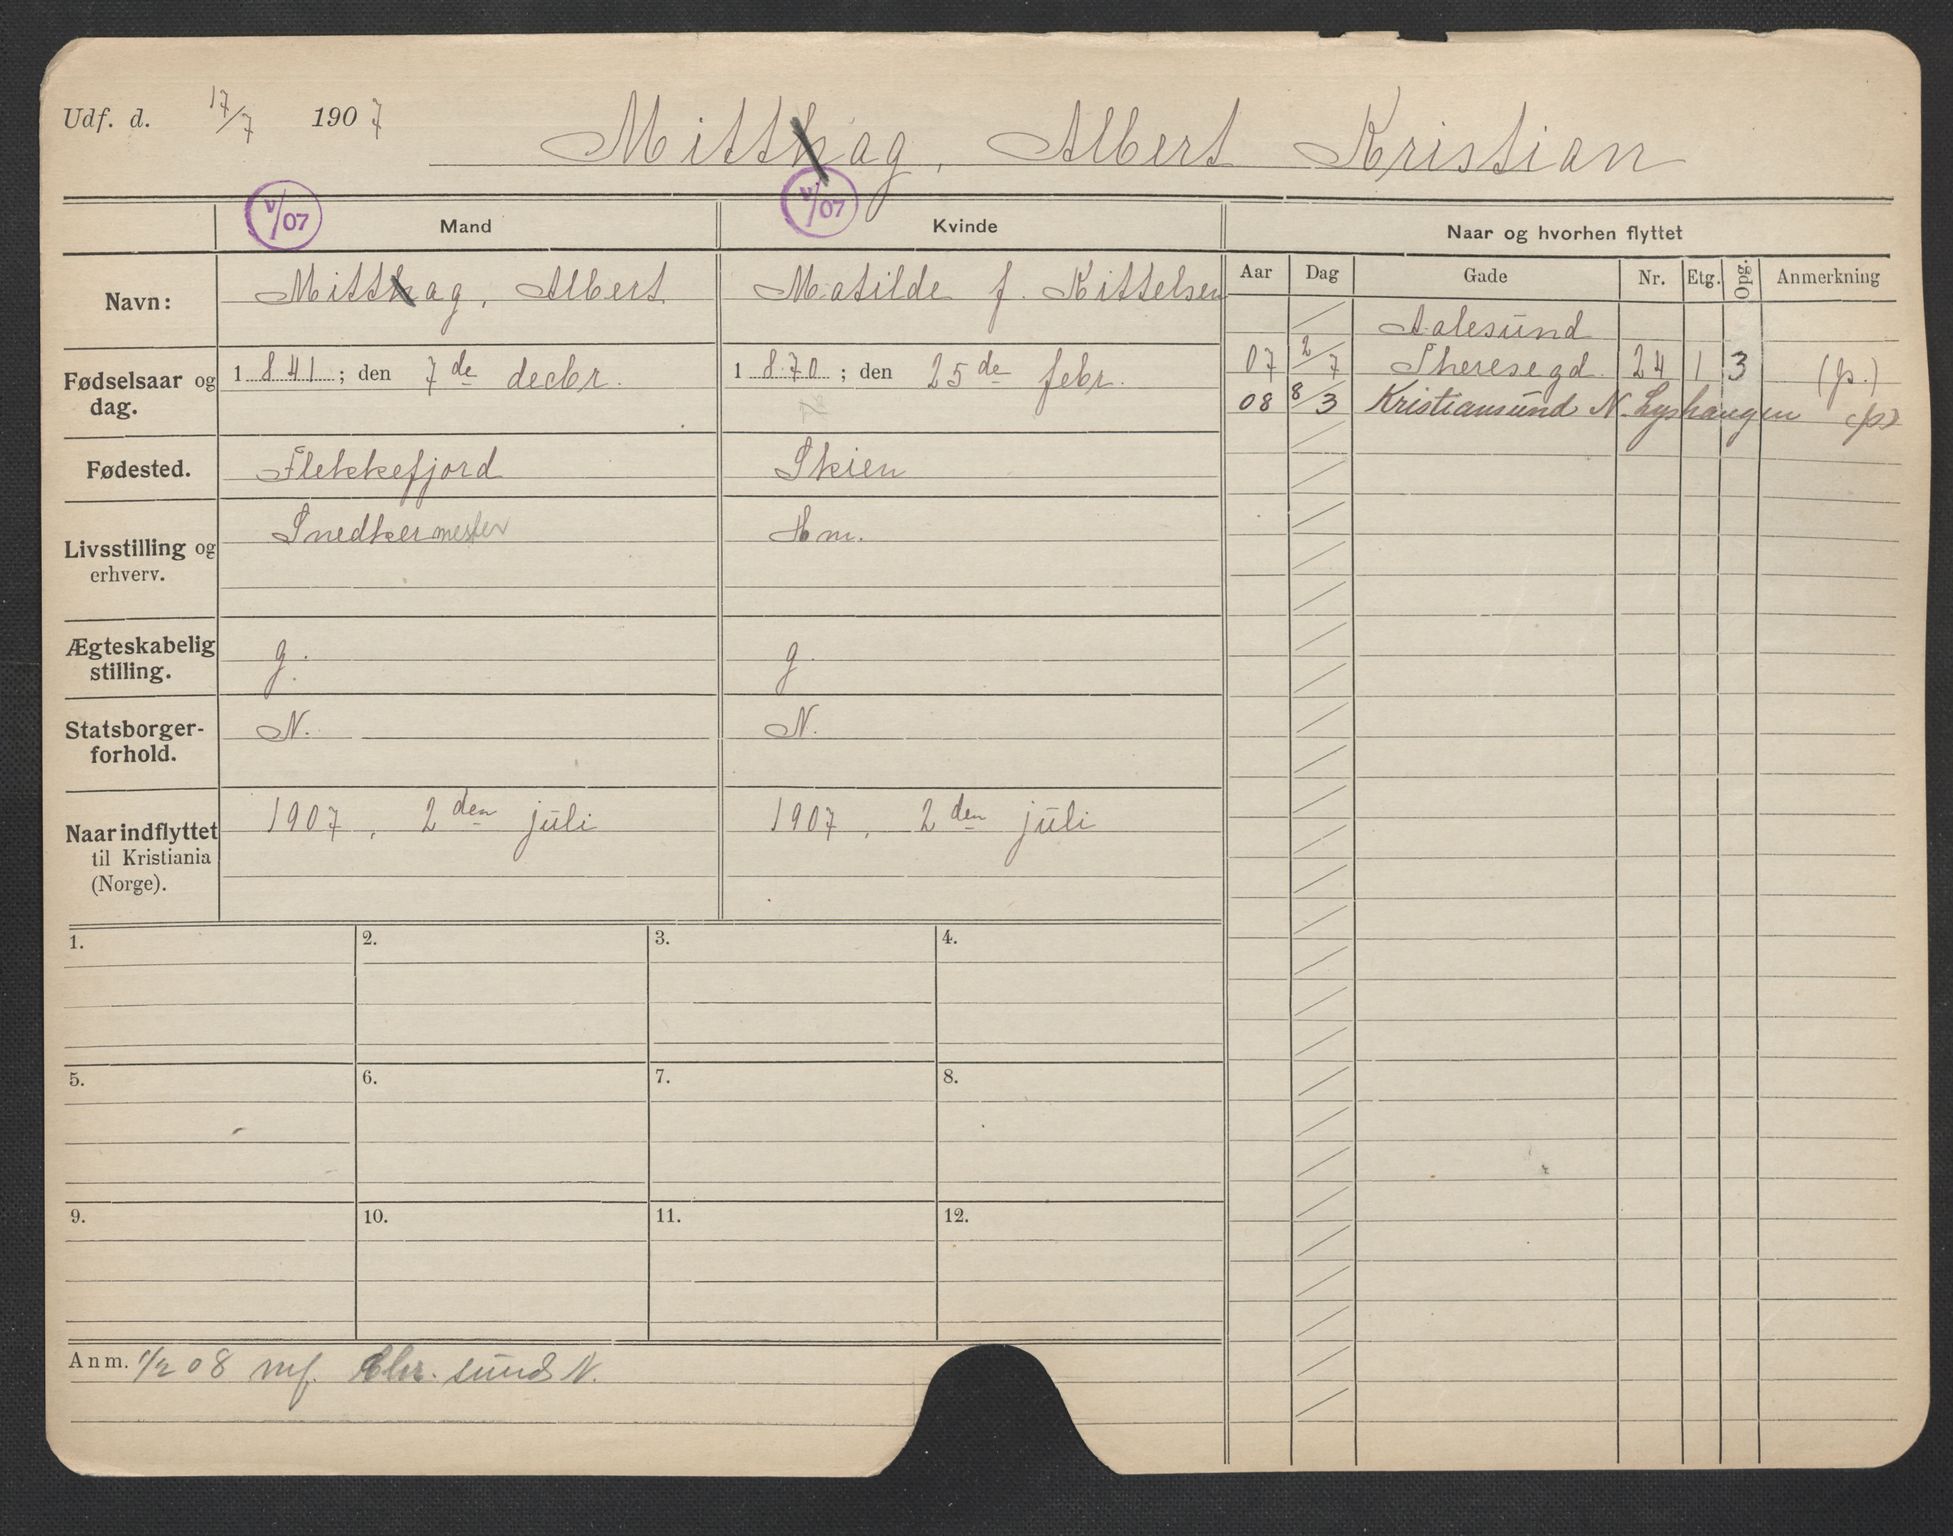 Udf. d. 17/7 1907 Mitthag, Albert Kristian
V/07 V/07
Mand Kvinde Naar og hvorhen flyttet
Aar Dag Gade Nr. Etg. Opg. Anmerkning
Navn: Mitthag, Albert Matilde f. Kittelsen
Aalesund
07 2/7 Theresegd. 24 1 3 (p.)
08 8/3 Kristiansund N. Lyshaugen (p)
Fødselsaar og 1841; den 7de decbr. 1870; den 25de febr.
dag.
Fødested. Flekkefjord Skien
Livsstilling og Snedkermester Hm.
erhverv.
Ægteskabelig g. g
stilling.
Statsborger- N. N.
forhold.
Naar indflyttet 1907, 2den juli 1907, 2den juli
til Kristiania
(Norge).
1. 2. 3. 4.
5. 6. 7. 8.
9. 10. 11. 12.
Anm. 1/2 08 mf. Chr. sund N.